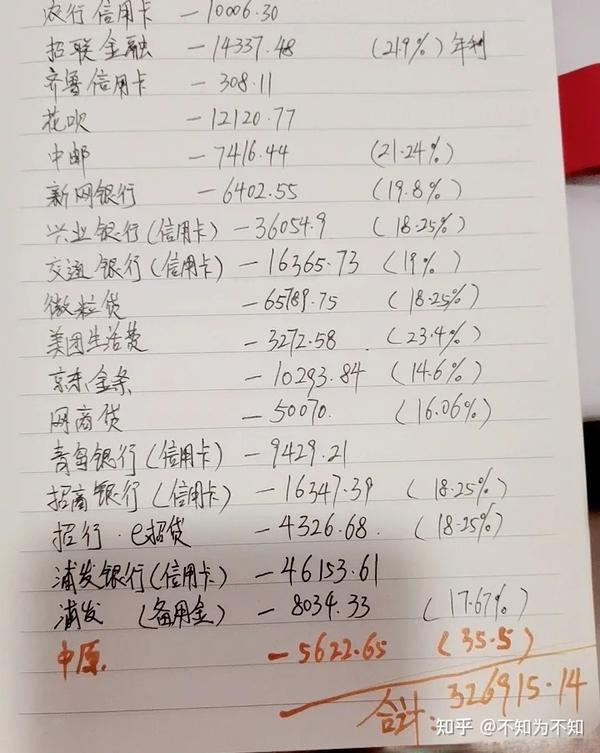 农行信用卡 -10006.30
招联金融 -14337.48 (21.9%)年利
齐鲁信用卡 -308.11
花呗 -12120.77
中邮 -7416.44 (21.24%)
新网银行 -6402.55 (19.8%)
兴业银行(信用卡) -36054.9 (18.25%)
交通银行(信用卡) -16365.73 (19%)
微粒贷 -65789.75 (18.25%)
美团生活费 -3272.58 (23.4%)
京东金条 -10293.84 (14.6%)
网商贷 -50070. (16.06%)
青岛银行(信用卡) -9429.21
招商银行(信用卡) -16347.39 (18.25%)
招行·e招贷 -4326.68 (18.25%)
浦发银行(信用卡) -46153.61
浦发 (备用金) -8034.33 (17.67%)
中原 -5622.65 (35.5)
合计: 326915.14
知乎 @不知为不知